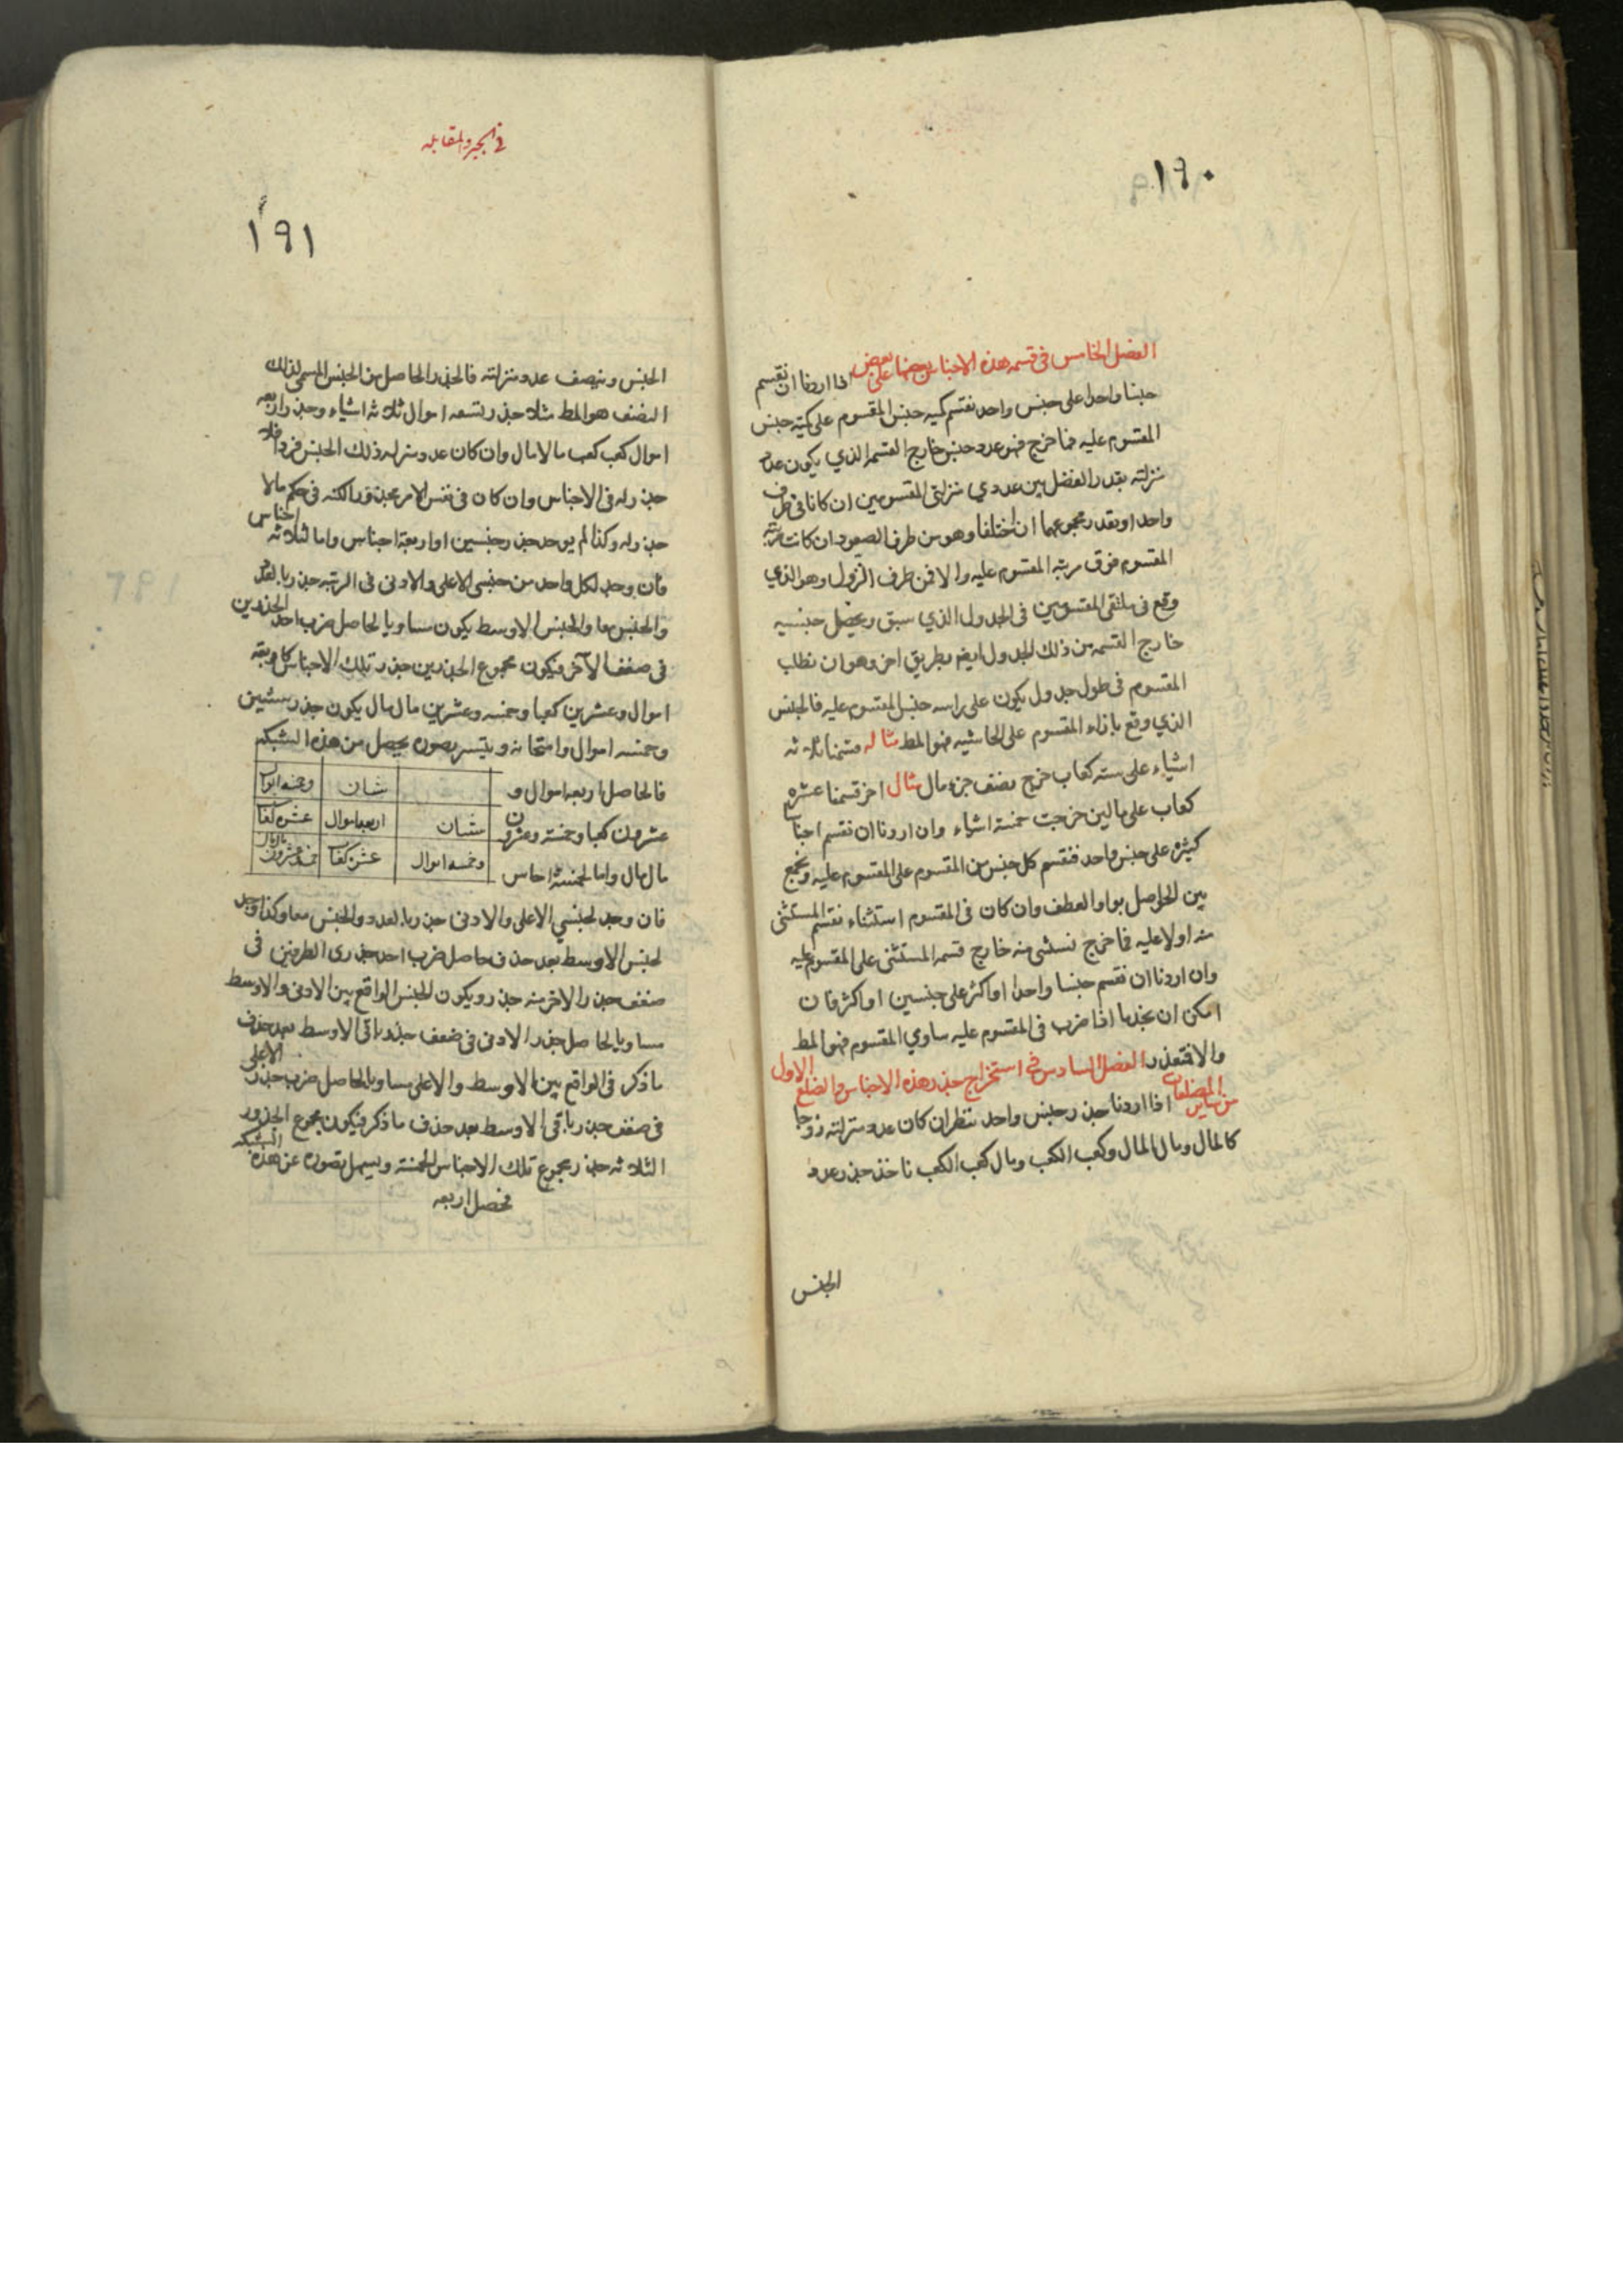 ١٩٠
الفصل الخامس فى قسمة هذه الاجناس بعضها على بعض اذا اردنا ان نقسم
جنسا واحدا على جنس واحد نقسم كمية جنس المقسوم على كمية جنس
المقسوم عليه فما خرج فهو عدد جنس خارج القسمة الذي يكون عدد
منزلته بقدر الفضل بين عددي منزلتى المقسومين ان كانا فى طرف
واحد او بقدر مجموعهما ان اختلفا وهو من طرف الصعود ان كانت مرتبة
المقسوم فوق مرتبة المقسوم عليه والا فمن طرف النزول وهو الذي
وقع فى ملتقى المقسومين فى الجدول الذي سبق ويحصل جنسيه
خارج القسمة من ذلك الجدول ايضا بطريق اخر وهو ان نطلب
المقسوم فى طول جدول يكون على راسه جنس المقسوم عليه فالجنس
الذي وقع بازاء المقسوم على الحاشيه فهو المط مثاله قسمنا ثلاثه
اشياء على سته كعاب خرج نصف جزء مال مثال اخر قسمنا عشره
كعاب على مالين خرجت خمسة اشياء وان اردنا ان نقسم اجناسا
كثيره على جنس واحد فنقسم كل جنس من المقسوم على المقسوم عليه ونجمع
بين الحواصل بواو العطف وان كان فى المقسوم استثناء نقسم المستثنى
منه اولا عليه فما خرج نستثنى منه خارج قسمة المستثنى على المقسوم عليه
وان اردنا ان نقسم جنسا واحدا او اكثر على جنسين او اكثر فان
امكن ان نجد ما اذا ضرب فى المقسوم عليه ساوي المقسوم فهو المط
والا فتعذر الفصل السادس فى استخراج جذر هذه الاجناس والضلع الاول
من ساير المضلعات اذا اردنا جذر جنس واحد ننظر ان كان عدد منزلته زوجا
كالمال ومال المال وكعب الكعب ومال كعب الكعب ناخذ جذر عدد
الجنس
فى الجبر والمقابله
١٩١
الجنس وننصف عدد منزلته فالجذر الحاصل من الجنس المسمى لذلك
النصف هو المط مثلا جذر تسعه اموال ثلاثه اشياء وجذر اربعه
اموال كعب كعب مالا مال وان كان عدد منزله ذلك الجنس فردا فلا
جذر له فى الاجناس وان كان فى نفس الامر مجذورا لكنه فى حكم ما لا
جذر له وكذا لم يوجد جذر جنسين او اربعة اجناس واما لثلاثه اجناس
فان وجد لكل واحد من جنسى الاعلى والادنى فى الرتبه جذر بالعدد
والجنس معا والجنس الاوسط يكون مساويا لحاصل ضرب احد الجذرين
فى ضعف الآخر فيكون مجموع الجذرين جذر تلك الاجناس كاربعه
اموال وعشرين كعبا وخمسه وعشرين مال مال يكون جذره شيئين
وخمسه اموال وامتحانه ويتيسر بصوره يحصل من هذه الشبكه
فالحاصل اربعه اموال و
عشرون كعبا وخمسة وعشرون
مال مال واما لخمسة اجناس
شيئان وخمسه اموال
شيئان اربعه اموال عشره كعاب
وخمسه اموال عشره كعاب خمسه وعشرون مال مال
فان وجد لجنسي الاعلى والادنى جذر بالعدد والجنس معا وكذا وجد
لجنس الاوسط بعد حذف حاصل ضرب احد جذرى الطرفين فى
ضعف جذر الاخر منه جذر ويكون الجنس الواقع بين الادنى والاوسط
مساويا لحاصل جذر الادنى فى ضعف جذر باقى الاوسط بعد حذف
ما ذكر فى الواقع بين الاوسط والاعلى مساويا لحاصل ضرب جذر الاعلى
فى ضعف جذر باقى الاوسط بعد حذف ما ذكر فيكون مجموع الجذور
الثلاثه جذر مجموع تلك الاجناس الخمسة ويسهل تصوره عن هذه الشبكه
فحصل اربعه